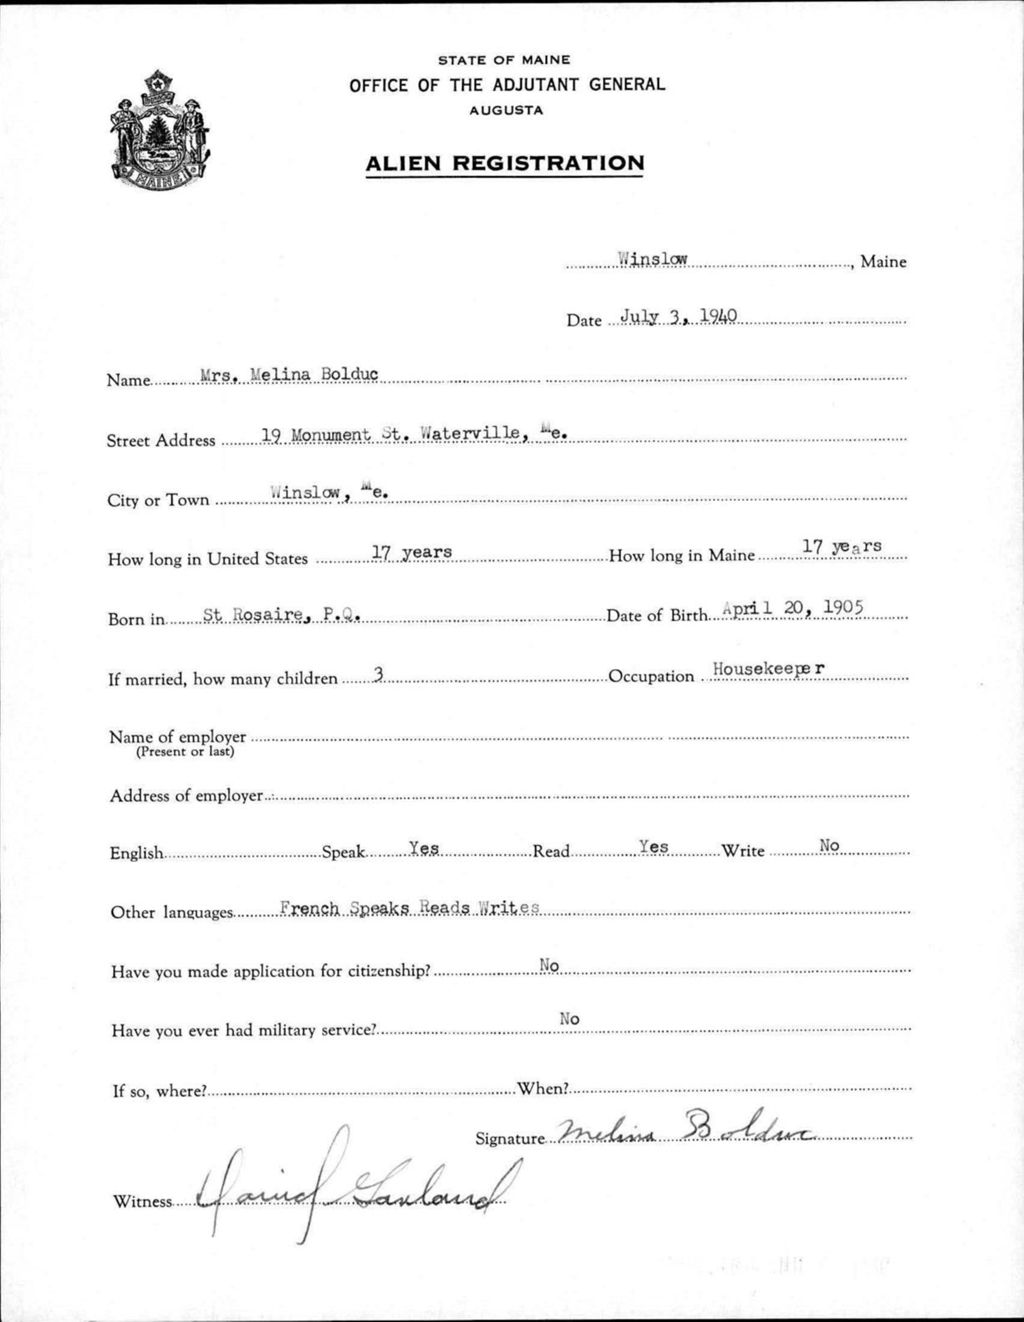 STATE OF MAINE
OFFICE OF THE ADJUTANT GENERAL
AUGUSTA
ALIEN REGISTRATION
MAINE
Winslow, Maine
Date July 3, 1940
Name Mrs. Melina Bolduc
Street Address 19 Monument St. Waterville, Me.
City or Town Winslow, Me.
How long in United States 17 years How long in Maine 17 years
Born in St Rosaire, P.Q. Date of Birth April 20, 1905
If married, how many children 3 Occupation Housekeeper
Name of employer
(Present or last)
Address of employer
English Speak Yes Read Yes Write No
Other languages French Speaks Reads Writes
Have you made application for citizenship? No
Have you ever had military service? No
If so, where? When?
Signature Melina Bolduc
Witness Garland